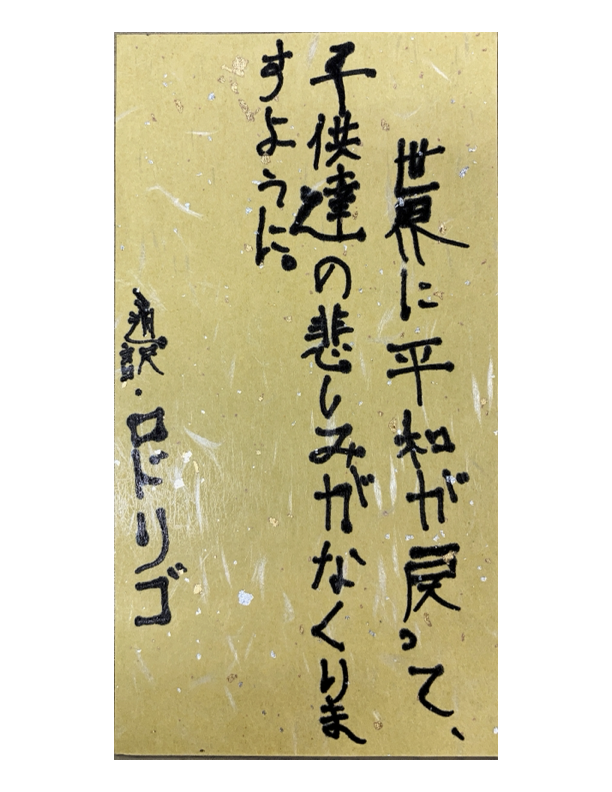 世界に平和が戻って、
子供達の悲しみがなくりま
すように。
通説・ロドリゴ